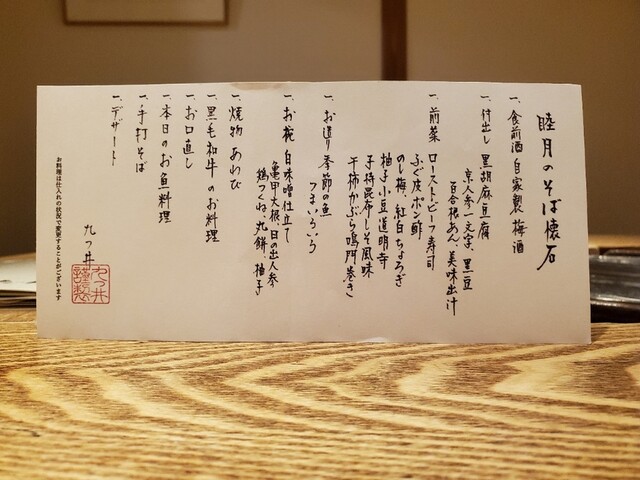 睦月のそば懐石
一、食前酒 自家製 梅酒
一、付出し 黒胡麻豆腐
京人参一文字、黒豆
百合根あん、美味出汁
一、前菜 ローストビーフ寿司
ふぐ皮ポン酢
のし梅、紅白ちょろぎ
柚子小豆道明寺
子持昆布しそ風味
干柿かぶら鳴門巻き
一、お造り 季節の魚
つまいろいろ
一、お椀 白味噌仕立て
亀甲大根、日の出人参
鶏つくね、丸餅、柚子
一、焼物 あわび
一、黒毛和牛のお料理
一、お口直し
一、本日のお魚料理
一、手打そば
一、デザート
九つ井
お料理は仕入れの状況で変更することがございます